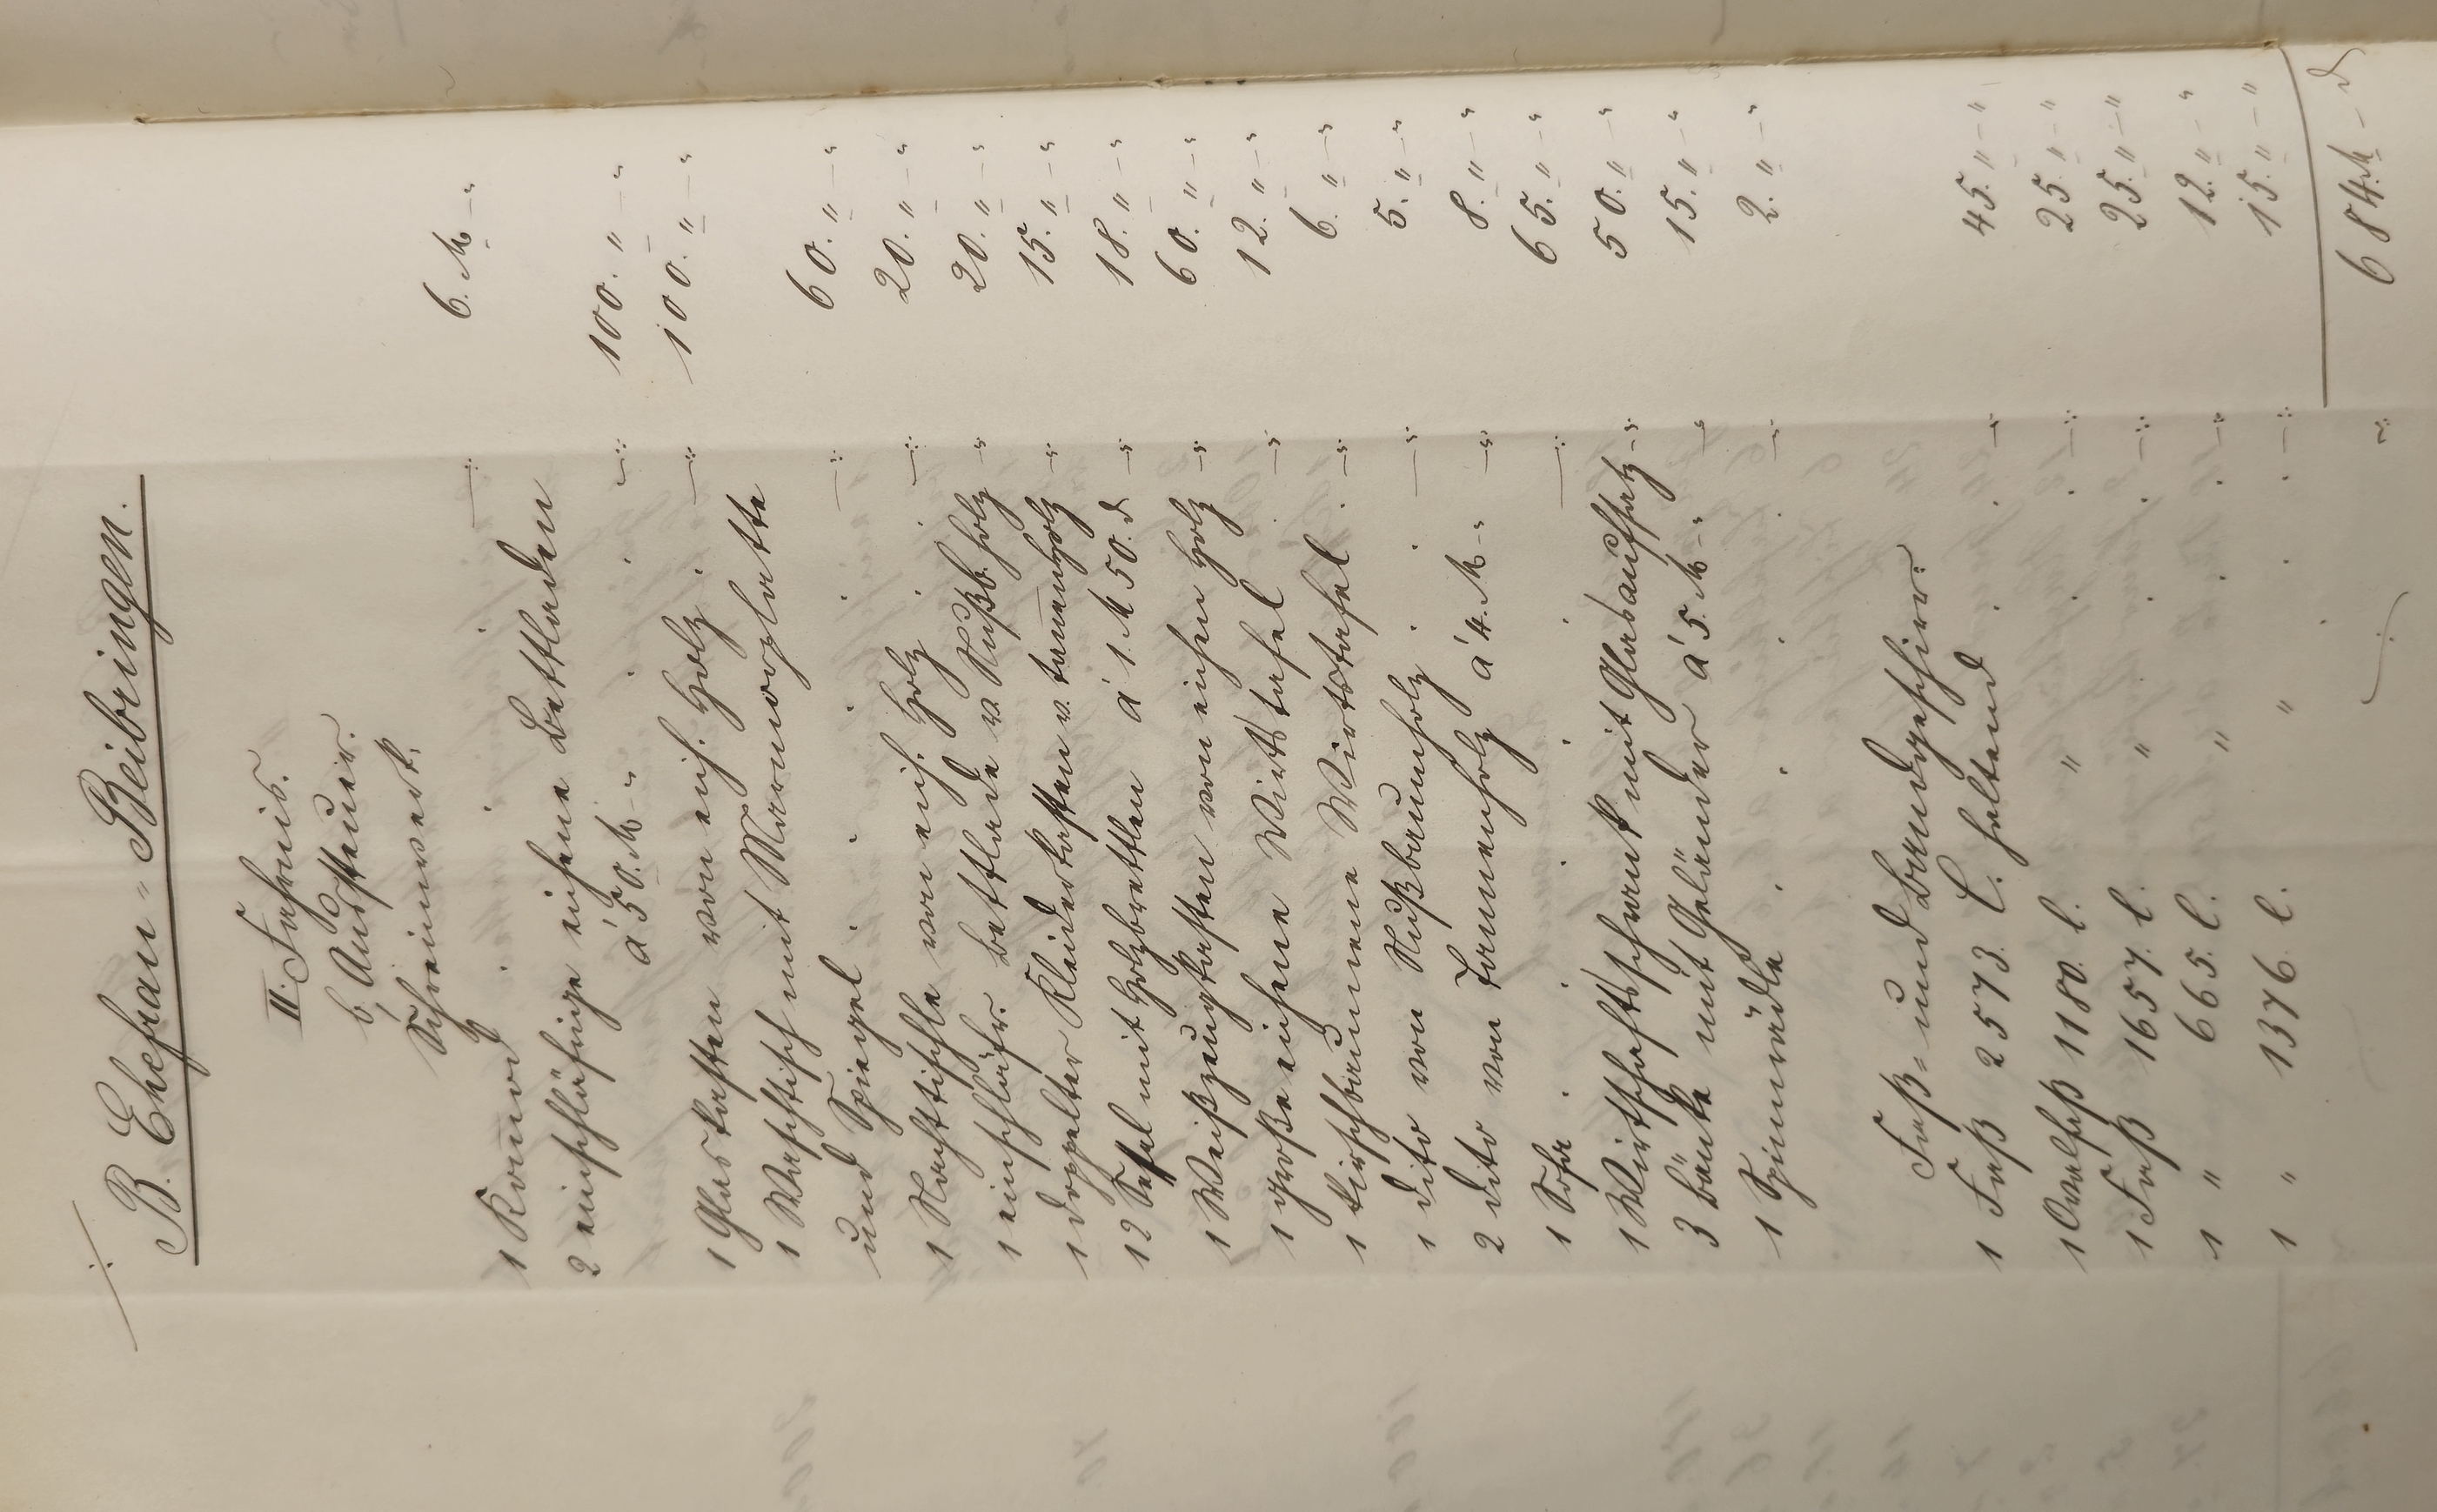 B. Ehefrau-Beibringen.
II. Fahrnis.
b, Aussteuer.
Schreinwerk.
1 Kom̅od . . . —:. 6. M –"
2 einschläfrige eichene Bettladen
à 50. M –" . . —:. 100. " –"
1 Glaskasten von eich. Holz . —:. 100. " –"
1 Waschtisch mit Marmorplatte
und Spiegel . . . . —:. 60. " –"
1 Nachttischle von eich. Holz . . —:. 20. " –"
1 einschläfr. Bettlade v. Nußb. holz –:. 20. " –"
1 doppelter Kleiderkasten v. tan̅enholz –:. 15. " –"
12 Sessel mit Holzbrettlen à 1. M 50. d –:. 18. " –"
1 Weißzeugkasten von eichen Holz –:. 60. " –"
1 große eichene Wirtstafel . –:. 12. " –"
1 kirschbaumene Wirtstafel . –:. 6. " –"
1 dito von Nußbaumholz . . —:. 5. " –"
2 dito von Tannenholz à 4. M –" –:. 8. " –"
1 Sofa . . . . . —:. 65. " –"
1 Wirtschaftsschrank mit Glasaufsatz –:. 50. " –"
3 Bänke mit Geländer à 5. M –" –:. 15. " –"
1 Spinnrädle . . . . –:. 2. " –"
Faß- und Bandgeschirr.
1 Faß 2573. l. haltend . . –:. 45. " –"
1 Ovalfaß 1180. l. " . . –:. 25. " –"
1 Faß 1657. l. " . . –:. 25. " –"
1 " 665. l. " . . –:. 12. " –"
1 " 1376. l. " . . –:. 15. " –"
–:. 684. M – d